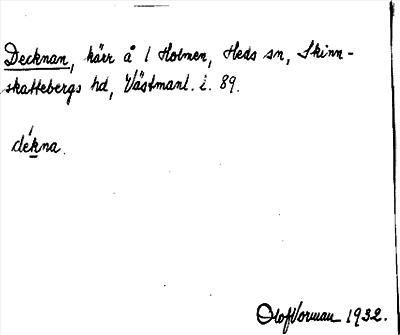 Decknan, kärr å 1 Holmen, Heds sn, Skinn-
skattebergs hd, Västmanl. l. 89.
dékna.
Olof Vorman 1932.